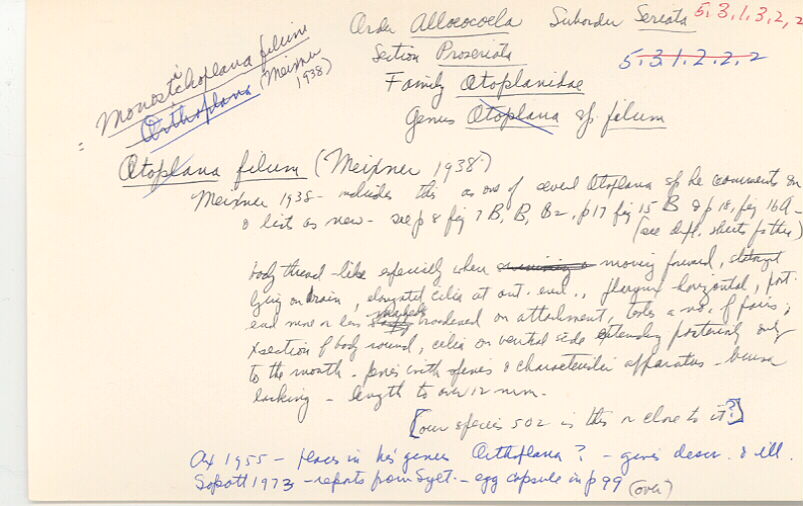 Order Alloeocoela Suborder Seriata 5.3.1.3.2.2
Section Proseriata 5.3.1.2.2.2
Family Otoplanidae
Genus Otoplana sp. filum
= Monostichoplana filum
Orthoplana (Meixner 1938)
Otoplana filum (Meixner 1938)
Meixner 1938 - includes this as one of several Otoplana sp he comments on
& lists as new - see p 8 fig 7 B, B, B2, p 17 fig 15 B & p 18, fig 16A -
(see sheets)
body thread-like especially when moving forward,
lying on brain, elongated cilia at ant. end., pharynx horizontal, post.
end more or less broadened on attachment, testes a no. of pairs,
xsection of body round, cilia on ventral side extending posteriorly only
to the mouth - penis with spines & characteristic apparatus - bursa
lacking - length to over 12 mm.
[our species 502 is this or close to it?]
Ax 1955 - places in his genus Orthoplana? - gives descr. & ill.
Sopott 1973 - reports from Sylt - egg capsule in p 99 (over)